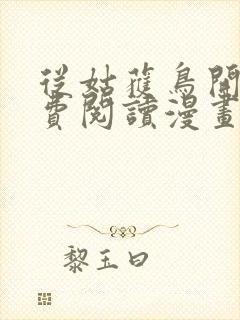 從姑獲鳥開
費閱讀漫畫
黎玉曰